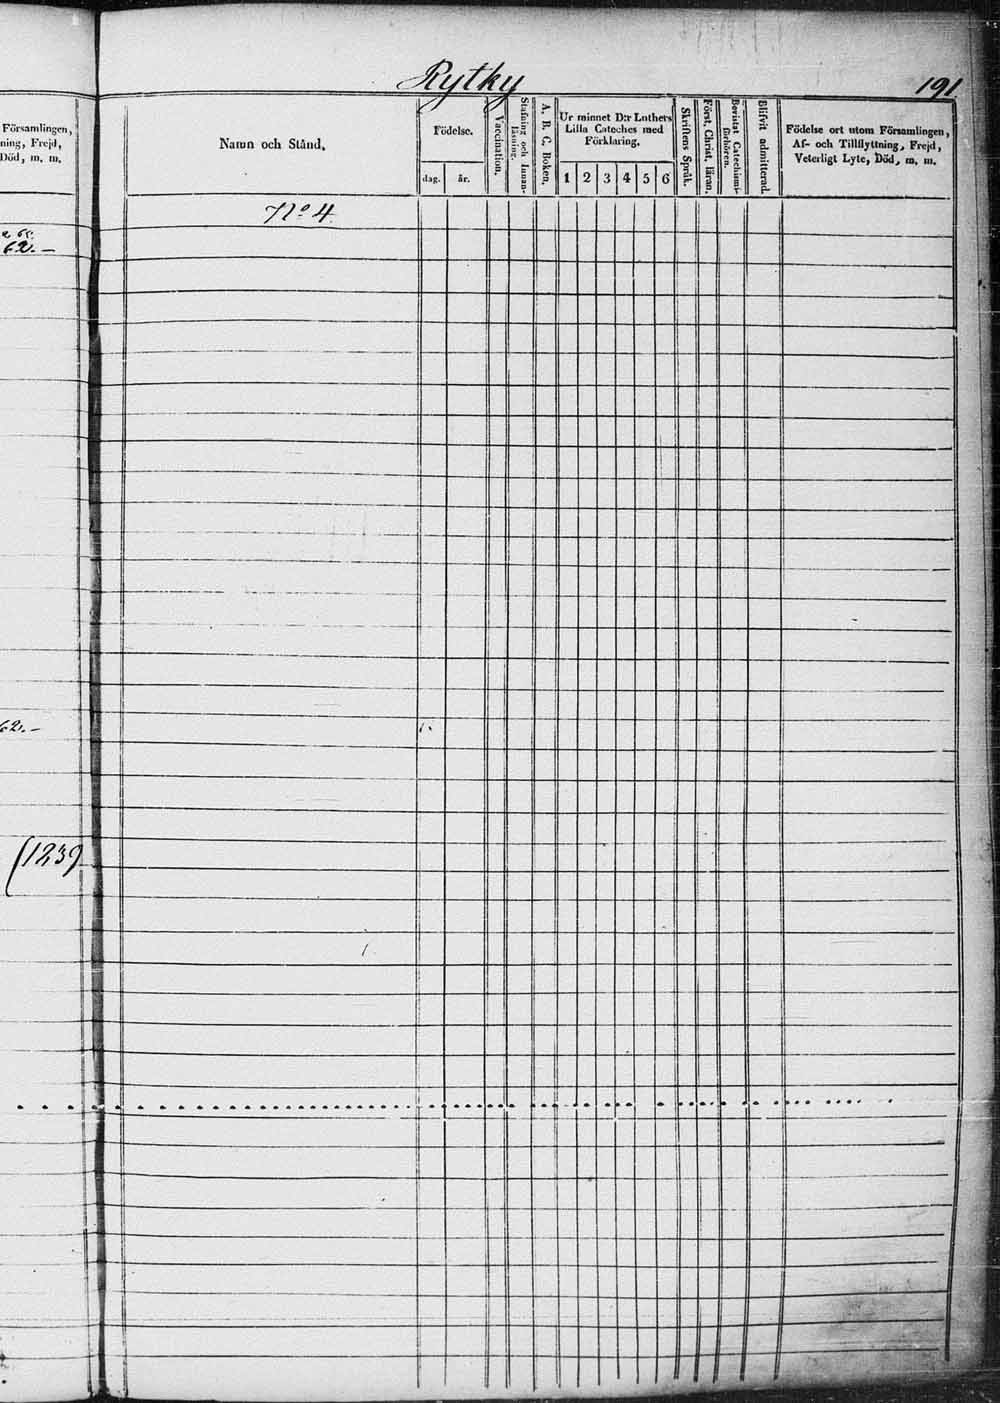 Rytky
191
Församlingen,
ning, Frejd,
Död, m. m.
Namn och Stånd.
Födelse.
dag.
år.
Vaccination.
Stafning och Innan-
läsning.
A. B. C. Boken.
Ur minnet D:r Luthers
Lilla Cateches med
Förklaring.
1 2 3 4 5 6
Skriftens Språk.
Först. Christ. läran.
Bevistat Catechismi-
förhören.
Blifvit admitterad.
Födelse ort utom Församlingen,
Af- och Tillflyttning, Frejd,
Veterligt Lyte, Död, m. m.
No 4.
62. —
62. —
(1239